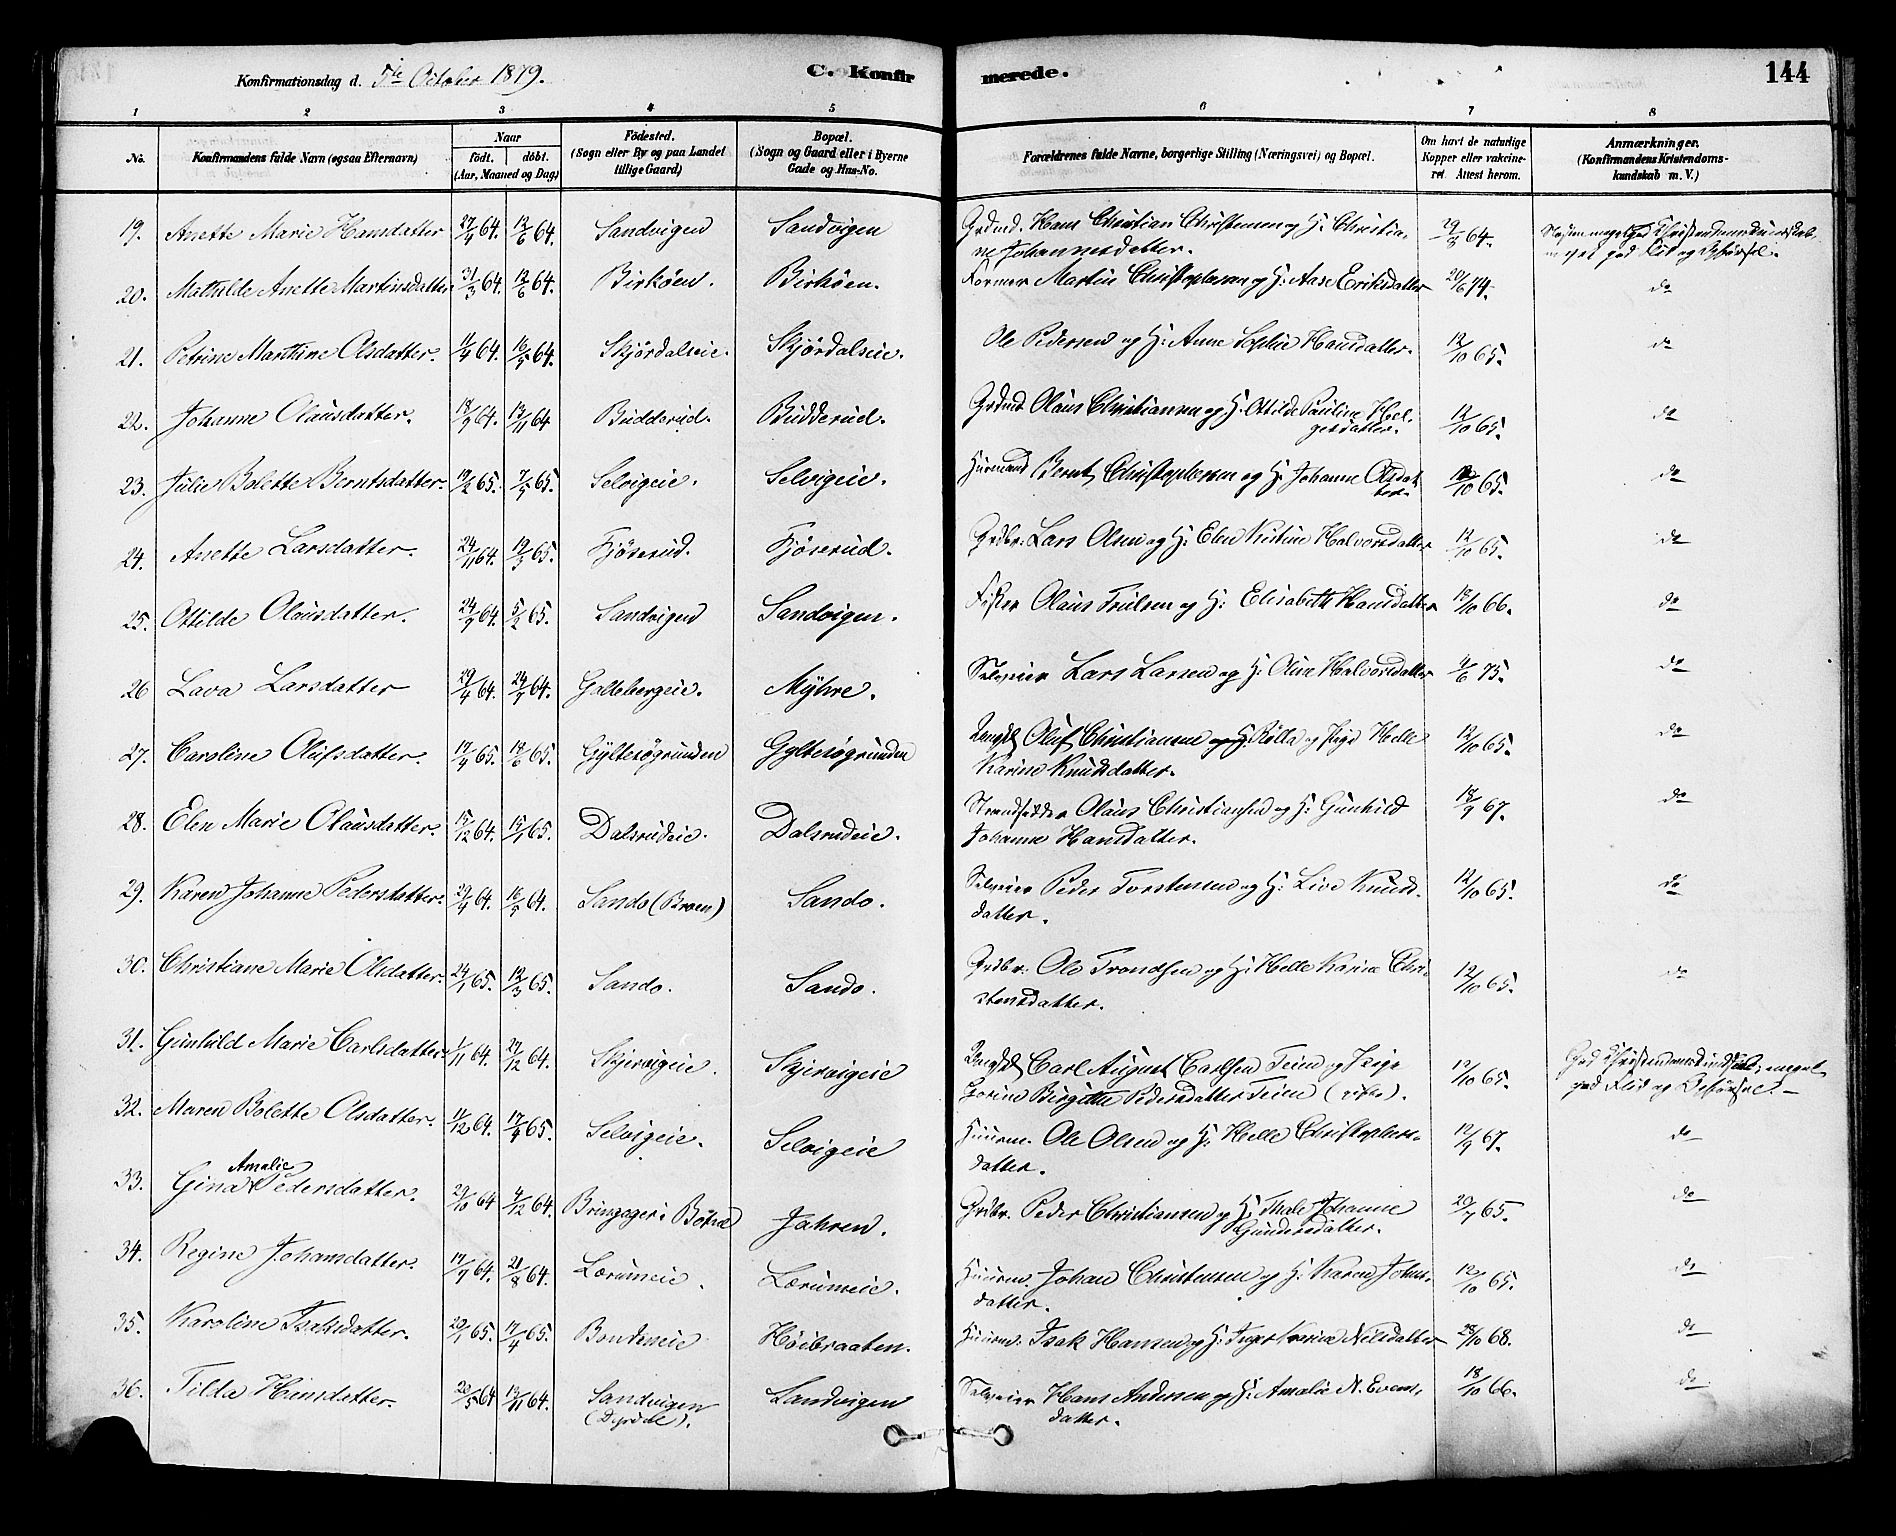 Konfirmationsdag d. 5te October 1879.
C. Konfirmerede.
144
1 2 3 4 5 6 7 8
No. Konfirmandens fulde Navn (ogsaa Efternavn) Naar födt. döbt. (Aar, Maaned og Dag) Födested. (Sogn eller By og paa Landet tillige Gaard) Bopæl. (Sogn og Gaard eller i Byerne Gade og Hus-No. Forældrenes fulde Navne, borgerlige Stilling (Næringsvei) og Bopæl. Om havt de naturlige Kopper eller vakcineret. Attest herom. Anmærkninger. (Konfirmandens Kristendomskundskab m. V.)
19. Anette Marie Hansdatter 27/4 64. 12/6 64. Sandvigen Sandvigen Grdmd. Hans Christian Christensen og H: Christiane Johannesdatter. 29/3 64. Næsten meget god Christendomskundskab, meget god Flid og Opførsel.
20. Mathilde Anette Martinsdatter 31/3 64. 12/6 64. Birköen. Birköen. Former Martin Christophersen og H: Aase Eriksdatter 20/6 74. do
21. Petrine Marthine Olsdatter. 1/4 64. 16/5 64. Skjördalseie. Skjördalseie. Ole Pedersen og H: Anne Sophie Hansdatter. 12/10 65. do
22. Johanne Olausdatter. 18/9 64. 13/11 64 Budderud. Budderud. Grdmd Olaus Christiansen og H. Ottilde Pauline Helgesdatter. 12/10 65. do
23. Julie Bolette Berntsdatter. 19/2 65. 7/5 65. Selvigeie. Selvigeie. Huusmand Bernt Christophersen og H: Johanne Olsdatter. 12/10 65. do
24. Anette Larsdatter. 24/11 64. 19/3 65. Fjöserud. Fjöserud. Grdbr: Lars Olsen og H: Elen Kristine Halvorsdatter 12/10 65. do
25. Ottilde Olausdatter. 24/9 64. 5/2 65. Sandvigen Sandvigen. Fisker Olaus Trulsen og H: Elisabeth Hansdatter 18/10 66. do
26 Lava Larsdatter 29/4 64. 24/7 64. Galtebergeie. Myhre. Selveier Lars Larsen og H: Oline Halvorsdatter 4/6 75. do
27. Caroline Olufsdatter. 17/4 65. 18/6 65. Gyltesögrunden Gyltesögrunden Ungkl Oluf Christiansen og Pige Helle Karine Knudsdatter. 12/10 65. do
28. Elen Marie Olausdatter. 15/12 64. 15/4 65. Dalsrudeie. Dalsrudeie. Strandsidder Olaus Christiansen og H: Gunhild Johanne Hansdatter. 18/9 67. do
29. Karen Johanne Pedersdatter. 29/4 64. 16/5 64. Sando (Braen) Sando. Selveier Peder Torstensen og H: Live Knudsdatter. 12/10 65. do
30. Christiane Marie Olsdatter. 24/1 65. 12/3 65. Sando. Sando. Grdbr: Ole Trondsen og H: Helle Karine Christensdatter. 12/10 65. do
31. Gunhild Marie Carlsdatter 1/11 64. 27/12 64. Skjervigeie. Skjervigeie Ungkl Carl August Carlsen Teien og Pige Gorine Birgitte Pedersdatter Teien. 12/10 65. God Christendomskundskab; meget god Flid og Opførsel. –
32. Maren Bolette Olsdatter. 11/12 64. 17/4 65. Selvigeie. Selvigeie Huusm. Ole Olsen og H: Helle Christophersdatter. 12/9 67. do
33. Gina Amalie Pedersdatter. 29/10 64 4/12 64. Bringager i Botne Jahren. Grdbr. Peder Christiansen og H: Thale Johanne Gundersdatter. 20/7 65. do
34. Regine Johansdatter. 17/7 64. 21/8 64. Lærumeie. Lærumeie. Huusm. Johan Christensen og H: Karen Johnsdatter. 12/10 65. do
35. Karoline Isaksdatter. 20/1 65. 17/4 65. Bondeneie Höibraaten. Huusm. Isak Hansen og H: Inger Karine Nilsdatter 28/10 68. do
36. Tilda Hansdatter. 20/5 64 13/11 64. Sandvigen (Dyrdal). Sandvigen Selveier Hans Andersen og H: Amalie N. Evensdatter. 18/10 66. do